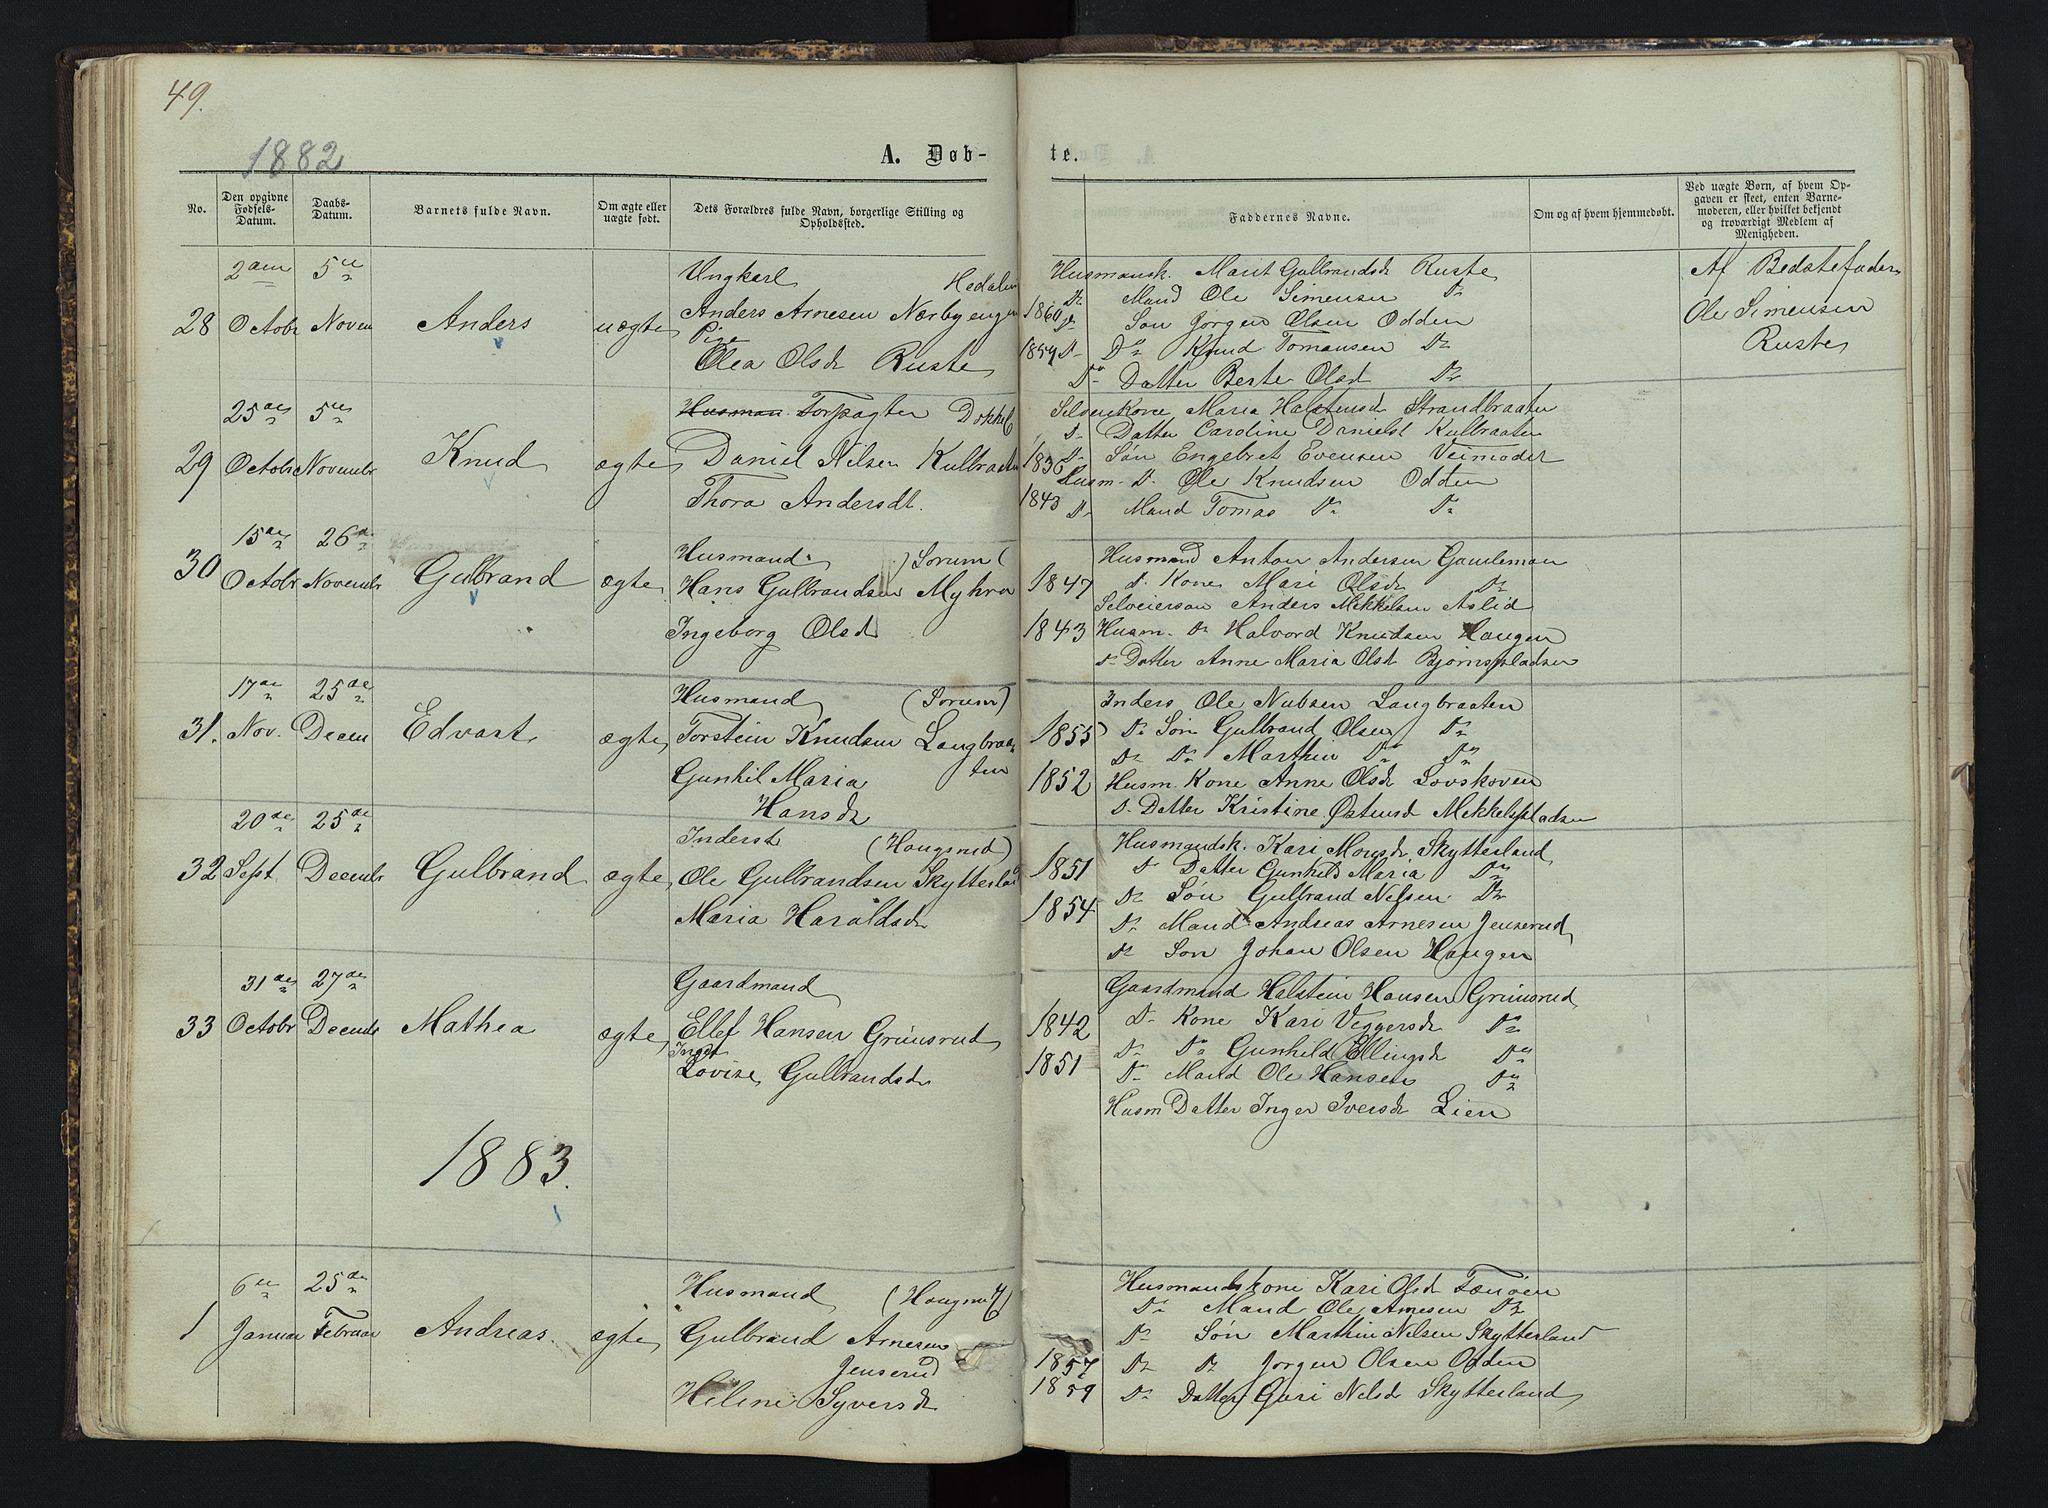 49.
1882
A. Døb-
No.
Den opgivne Fødsels-Datum.
Daabs-Datum.
Barnets fulde Navn.
Om ægte eller uægte født.
Dets Forældres fulde Navn, borgerlige Stilling og Opholdssted.
28
2den Octobr
5te Novem
Anders
uægte
Ungkarl Hedalen
Anders Arnesen Nørbyengen
Pige
Olea Olsdr Ruste
29
25de Octobr
5te Novembr
Knud
ægte
Husman Torpagter Dokken
Daniel Nilsen Kulbraaten
Thora Andersdt.
30
15de Octobr
26de Novembr
Gulbrand
ægte
Husmand (Sorum)
Hans Gulbrandsen Myhra
Ingeborg Olsd
31.
17de Nov.
25de Decem
Edvart
ægte
Husmand (Sorum)
Torstein Knudsen Langbraa
ten
Gunhil Maria
Hansdr
32
20de Sept.
25de Decembr
Gulbrand
ægte
Inderst (Hougsrud)
Ole Gulbrandsen Skytterla
Maria Haraldsdr
33
31de Octobr
27de Decembr
Mathea
ægte
Gaardmand
Ellef Hansen Grimsrud
Inger
Lovise Gulbrandsdr
1883.
1
6te Januar
25de Februar
Andreas.
ægte
Husmand (Hougsrud)
Gulbrand Arnesen
Jenserud
Helene Syversdr
te.
Faddernes Navne.
Om og af hvem hjemmedøbt.
Ved uægte Børn, af hvem Op-
gaven er skeet, enten Barne-
moderen, eller hvilket bekjendt
og troværdigt Medlem af
Menigheden.
Husmansk. Marit Gulbrandsdr Ruste
Do Mand Ole Simensen Do
1860 Do Søn Jørgen Olsen Odden
1857 Do Do Knud Tomassen Do
Do Datter Berte Olsd Do
Af Bedstefader
Ole Simensen
Ruste
Selveierkone Maria Halstensdr Strandbraaten
Do Datter Caroline Danielsdt Kulbraaten
1836 Do Søn Engebret Evensen Veimodet
Husm. Do Ole Knudsen Odden
1843 Do Mand Tomas Do Do
Husmand Anton Andersen Gamlemoen
1847 Do Kone Mari Olsdr Do
Selveiersøn Anders Mikkelsen Aslid
1843 Husm. Do Halvord Knudsen Haugen
Do Datter Anne Maria Olsdt Bjørnspladsen
Inders Ole Nubsen Langbraaten
1855 Do Søn Gulbrand Olsen Do
Do Do Marthin Do Do
1852 Husm. Kone Anne Olsdr Lovskoven
Do Datter Kristine Østensdr Mekkelspladsen
Husmandsk. Kari Monsdr Skytterland
1851 Do Datter Gunhild Maria Do
Do Søn Gulbrand Nelsen Do
1854 Do Mand Andreas Arnesen Jenserud
Do Søn Johan Olsen Haugen
Gaardmand Halstein Hansen Grimsrud
1842 Do Kone Kari Viggersdr Do
Do Do Gunhild Ellingsdr Do
1851 Do Mand Ole Hansen Do
Husm Datter Inger Iversdr Lien
Husmandskone Kari Olsdr Tærøen
Do Mand Ole Arnesen Do
Do Søn Marthin Nelsen Skytterland
1857 Do Do Jorgen Olsen Odden
1859 Do Datter Guri Nelsdr Skytterland